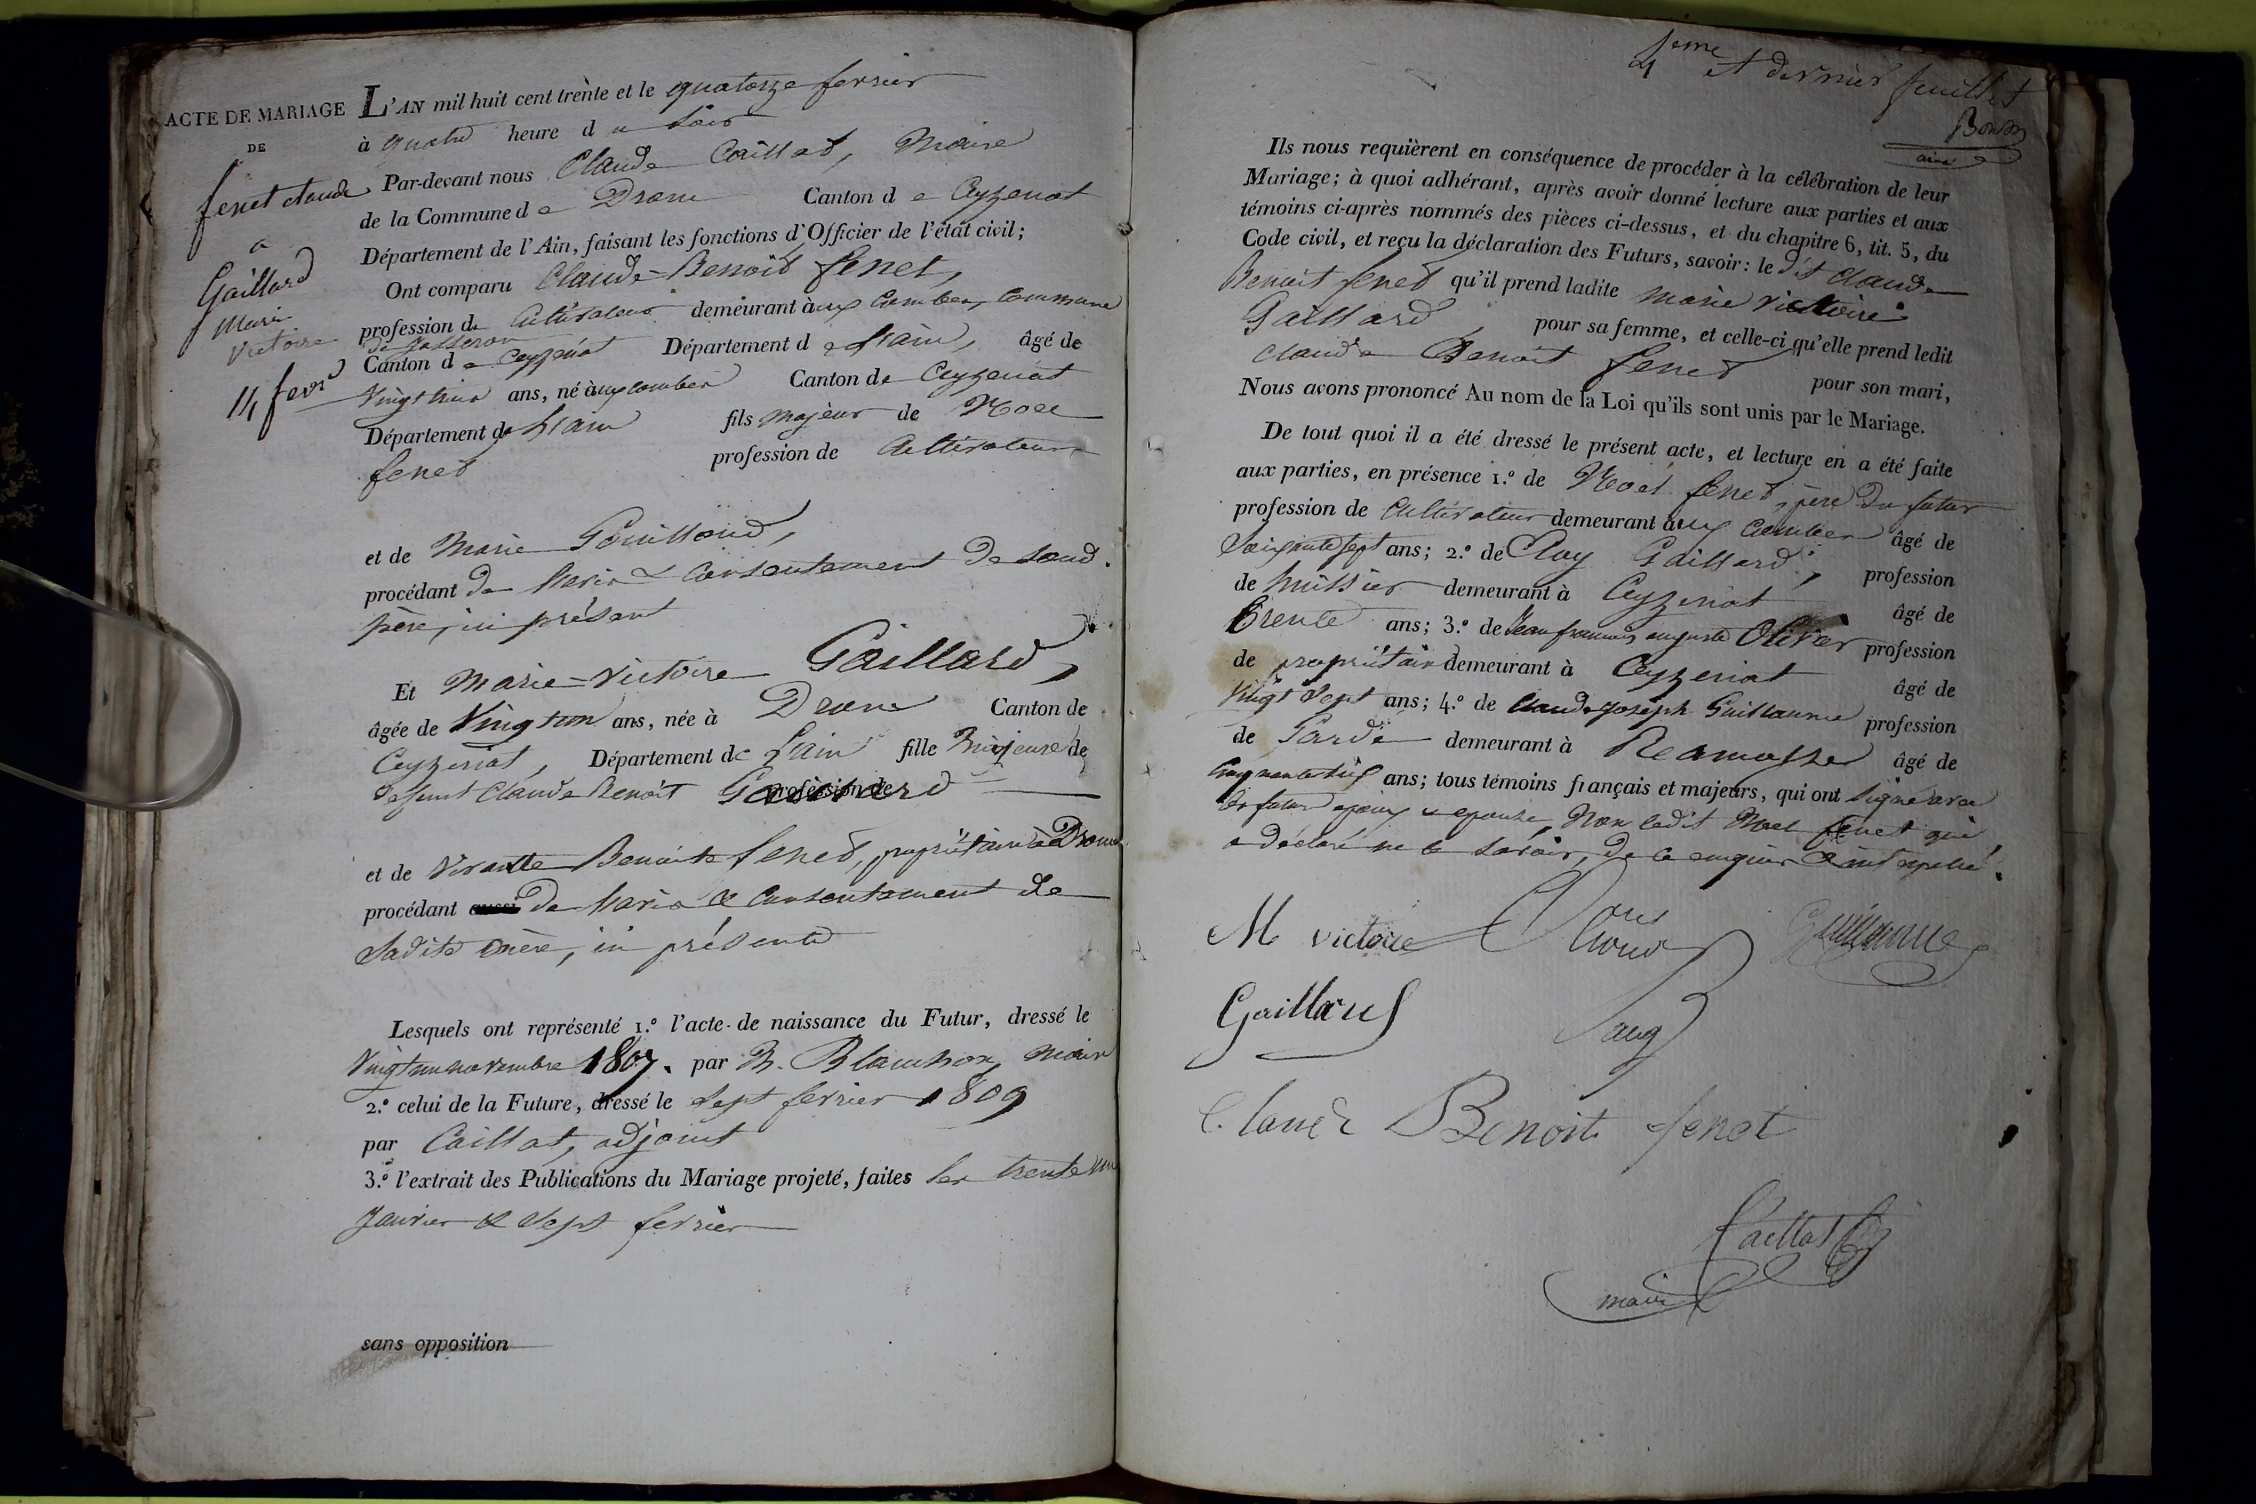 ACTE DE MARIAGE
DE
fenet claude
a
Gaillard
Marie
Victoire
14 fevr
L'AN mil huit cent trente et le quatorze fevrier
à quatre heure du soir
Par-devant nous Claude Caillat, Maire
de la Commune de Drom Canton de Ceyzeriat
Département de l'Ain, faisant les fonctions d'Officier de l'état civil;
Ont comparu Claude-Benoit fenet,
profession de Cultivateur demeurant aux Combes, Commune
de Jasseron
Canton de Ceyzeriat Département de Lain, âgé de
ans, né aux combes Canton de Ceyzeriat
Département de Lain fils majeur de Noel
fenet profession de Cultivateur
et de Marie Gouilloud,
procédant de l'avis & Consentement de sond.
père, ici présent
Et Marie-Victoire Gaillard,
âgée de Vingt un ans, née à Drom Canton de
Ceyzeriat, Département de Lain fille majeure de
deffunt Claude Benoit Gaillard profession de
et de Vivante Benoite fenet, propriétaire à Drom
procédant aussi de l'avis & Consentement de
sadite mère, ici présente
Lesquels ont représenté 1.º l'acte de naissance du Futur, dressé le
Vingt un novembre 1807. par M. Blanchon, maire
2.º celui de la Future, dressé le sept fevrier 1809
par Caillat, adjoint
3.º l'extrait des Publications du Mariage projeté, faites les trente un
Janvier & sept fevrier
sans opposition
4eme et dernier feuillet
Ils nous requièrent en conséquence de procéder à la célébration de leur
Mariage; à quoi adhérant, après avoir donné lecture aux parties et aux
témoins ci-après nommés des pièces ci-dessus, et du chapitre 6, tit. 5, du
Code civil, et reçu la déclaration des Futurs, savoir: le dit Claude
Benoit fenet qu'il prend ladite Marie Victoire
Gaillard, pour sa femme, et celle-ci qu'elle prend ledit
Claude Benoit fenet pour son mari,
Nous avons prononcé Au nom de la Loi qu'ils sont unis par le Mariage.
De tout quoi il a été dressé le présent acte, et lecture en a été faite
aux parties, en présence 1.º de Noël fenet, père du futur
profession de Cultivateur demeurant aux Combes âgé de
Soixante sept ans; 2.º de Gaillard, profession
de huissier demeurant à Ceyzeriat âgé de
trente ans; 3.º de Jean françois auguste Olivier profession
de propriétaire demeurant à Ceyzeriat âgé de
Vingt sept ans; 4.º de Claude Joseph Guillaume profession
de Garde demeurant à Ramasse âgé de
ans; tous témoins français et majeurs, qui ont signé avec
les futur epoux & epouse, Non ledit Noel fenet qui
a déclaré ne le savoir, de ce enquis & interpellé.
M victoire
Guillaume
Gaillard
Claude Benoit fenet
Caillat
maire